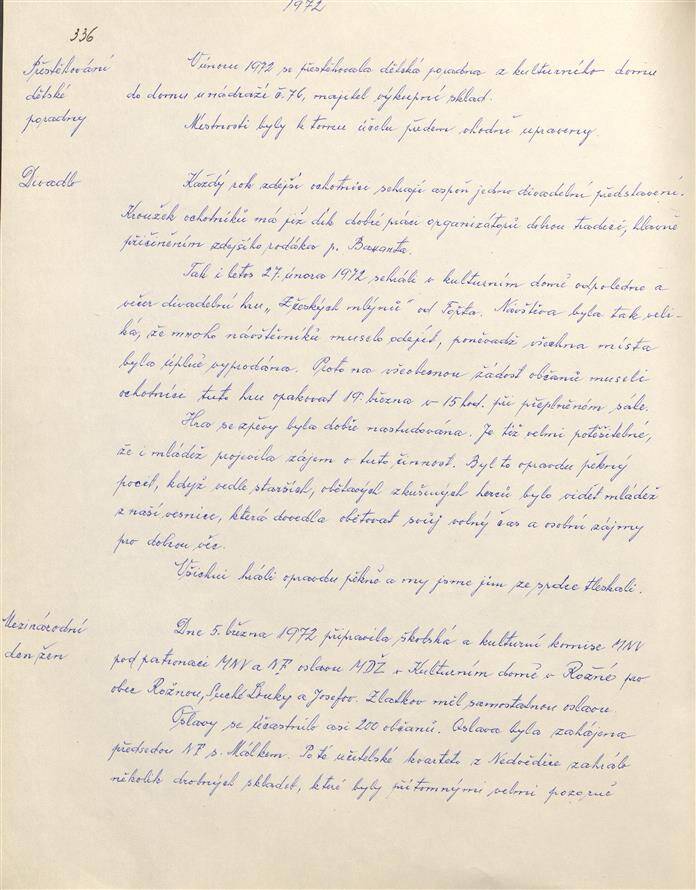 1972
336
Přestěhování
dětské
poradny
V únoru 1972 se přestěhovala dětská poradna z kulturního domu
do domu u nádraží č. 76, majitel výkupní sklad.
Místnosti byly k tomu účelu předem vhodně upraveny.
Divadlo
Každý rok zdejší ochotníci sehrají aspoň jedno divadelní představení.
Kroužek ochotníků má již dík dobré práci organizátorů dobrou tradici, hlavně
přičiněním zdejšího rodáka p. Bavanta.
Tak i letos 27. února 1972 sehráli v kulturním domě odpoledne a
večer divadelní hru „Z českých mlýnů" od Fořta. Návštěva byla tak veli-
ká, že mnoho návštěvníků muselo odejít, poněvadž všechna místa
byla úplně vyprodána. Proto na všeobecnou žádost občanů museli
ochotníci tuto hru opakovat 19. března v 15 hod. při přeplněném sále.
Hra se zpěvy byla dobře nastudována. Je též velmi potěšitelné,
že i mládež projevila zájem o tuto činnost. Byl to opravdu pěkný
pocit, když vedle starších, obětavých zkušených herců bylo vidět mládež
z naší vesnice, která dovedla obětovat svůj volný čas a osobní zájmy
pro dobrou věc.
Všichni hráli opravdu pěkně a my jsme jim ze srdce tleskali.
Mezinárodní
den žen
Dne 5. března 1972 připravila školská a kulturní komise MNV
pod patronací MNV a NF oslavu MDŽ v Kulturním domě v Rožné pro
obec Rožnou, Suché Louky a Josefov. Zlatkov měl samostatnou oslavu.
Oslavy se účastnilo asi 200 občanů. Oslava byla zahájena
předsedou NF s. Málkem. Poté učitelské kvarteto z Nedvědice zahrálo
několik drobných skladeb, které byly přítomnými velmi pozorně